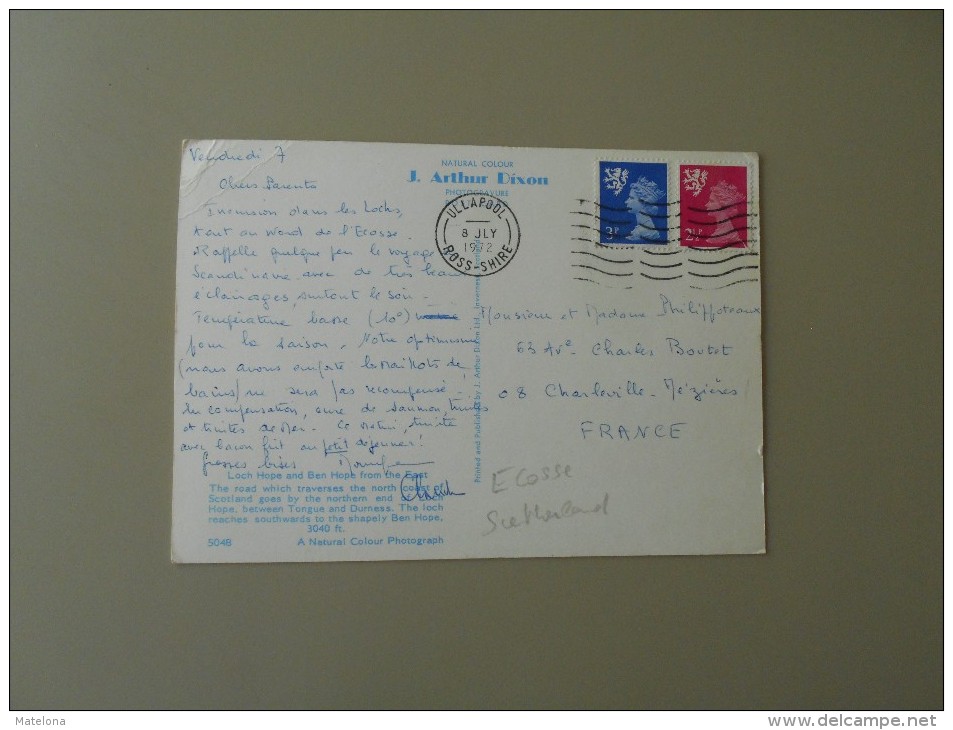 Vendredi 7
Chers Parents
Excursion dans les Lochs,
tout au Nord de l'Ecosse.
Rappelle quelque peu le voyage
Scandinavie avec de très beaux
éclairages, surtout le soir -
Température basse (10°)
pour la saison. Notre optimisme
(nous avons emporté les maillots de
bains) ne sera pas récompensé -
En compensation, cure de saumon, truites
et truites de Mer. Ce matin, truite
avec bacon frit au petit déjeuner!
Grosses bises
Loch Hope and Ben Hope from the East
The road which traverses the north coast of
Scotland goes by the northern end of Loch
Hope, between Tongue and Durness. The loch
reaches southwards to the shapely Ben Hope,
3040 ft.
504B A Natural Colour Photograph
NATURAL COLOUR
J. Arthur Dixon
PHOTOGRAVURE
Printed and Published by J. Arthur Dixon Ltd., Inverness
ULLAPOOL
8 JLY
1972
ROSS-SHIRE
3P
2½P
Monsieur et Madame Philippoteaux
63 Ave Charles Boutet
08 Charleville-Mézières
FRANCE
Ecosse
Sutherland
Matelona
delcampe.net